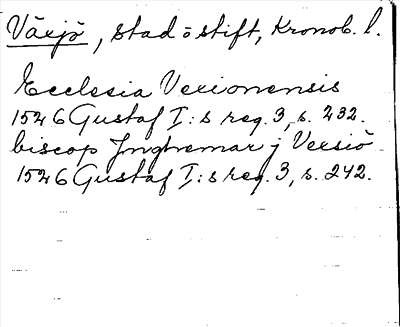 Växjö, stad o stift, Kronob. l.
Ecclesia Vexionensis
1526 Gustaf I:s reg. 3, s. 232.
biscop Jnghemar j Vexsiö
1526 Gustaf I:s reg. 3, s. 242.